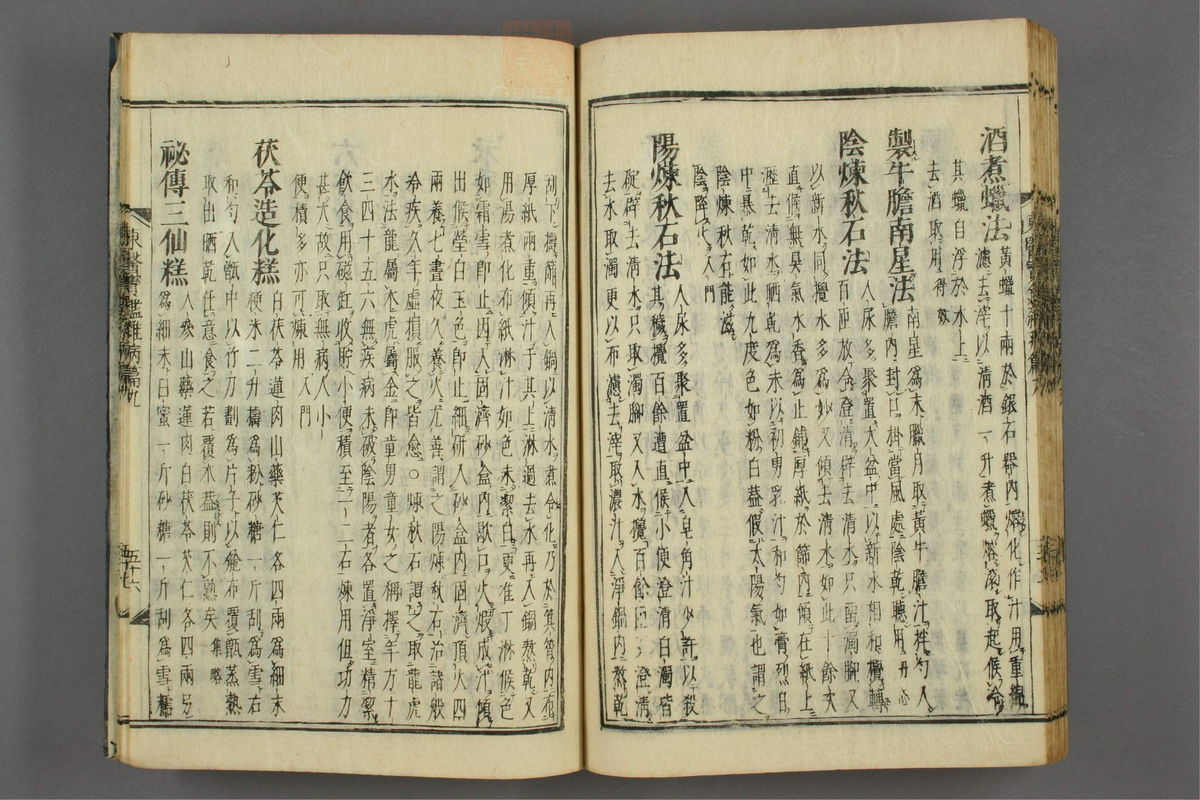 酒煮蠟法 黃蠟十兩於銀石器內熔化作汁用重綿
濾去滓以淸酒一升煮蠟熔滾取起候冷
其蠟自浮於水上
去酒取用 得效
製牛膽南星法 南星爲末臘月取黃牛膽汁拌勻入
膽內封口掛當風處陰乾聽用 丹心
陰煉秋石法 人尿多聚置大盆中以新水相和攪轉
百匝放令澄淸辟去淸水只留濁脚又
以新水同攪水多爲妙又傾去淸水如此十餘次
直候無臭氣水香爲止鋪厚紙於篩內傾在紙上
瀝去淸水晒乾爲末以初男乳汁和勻如膏烈日
中暴乾如此九度色如粉白蓋假太陽氣也謂之
陰煉秋石能滋
陰降火 入門
陽煉秋石法 人尿多聚置盆中入皂角汁少許以殺
其穢攪百餘遭直候小便澄淸白濁皆
碇辟去淸水只取濁脚又入水攪百餘匝又澄淸
去水取濁更以布濾去滓取濃汁入淨鍋內熬乾
刮下搗篩再入鍋以淸水煮令化乃於箕管內布
厚紙兩重傾汁于其上淋過去水再入鍋熬乾又
用湯煮化布紙淋汁如色未潔白更准丁淋候色
如霜雪卽止內入固濟砂盒內歇口火煆成汁傾
出候瑩白玉色卽止細硏入砂盒內固濟頂火四
兩養七晝夜久養火尤善謂之陽煉秋石治諸般
冷疾久年虛損服之皆愈○煉秋石謂之取龍虎
水法龍屬木虎屬金卽童男童女之稱擇年方十
三四十五六無疾病未破陰陽者各置淨室精潔
飮食用磁缸收貯小便積至一二石煉用但功力
甚大故只取無病人小
便積多亦可煉用 入門
茯苓造化糕 白茯苓蓮肉山藥芡仁各四兩爲細末
粳米二升搗爲粉砂糖一斤刮爲雪右
和勻入甑中以竹刀劃爲片子以鍾布覆甑蒸熟
取出晒乾任意食之若覆木蓋則不熟矣 集略
祕傳三仙糕 人參山藥蓮肉白茯苓芡仁各四兩另
爲細末白蜜一斤砂糖一斤刮爲雪糯
東醫寶鑑雜病篇九
五十六